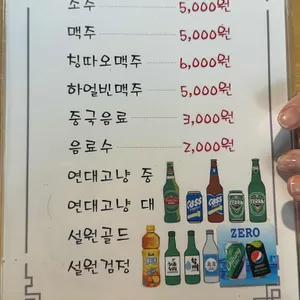 소주 5,000원
맥주 5,000원
칭따오맥주 6,000원
하얼빈맥주 5,000원
중국음료 3,000원
음료수 2,000원
연태고냥 중
연태고냥 대
설원골드
설원검정
CASS
TERRA
ZERO